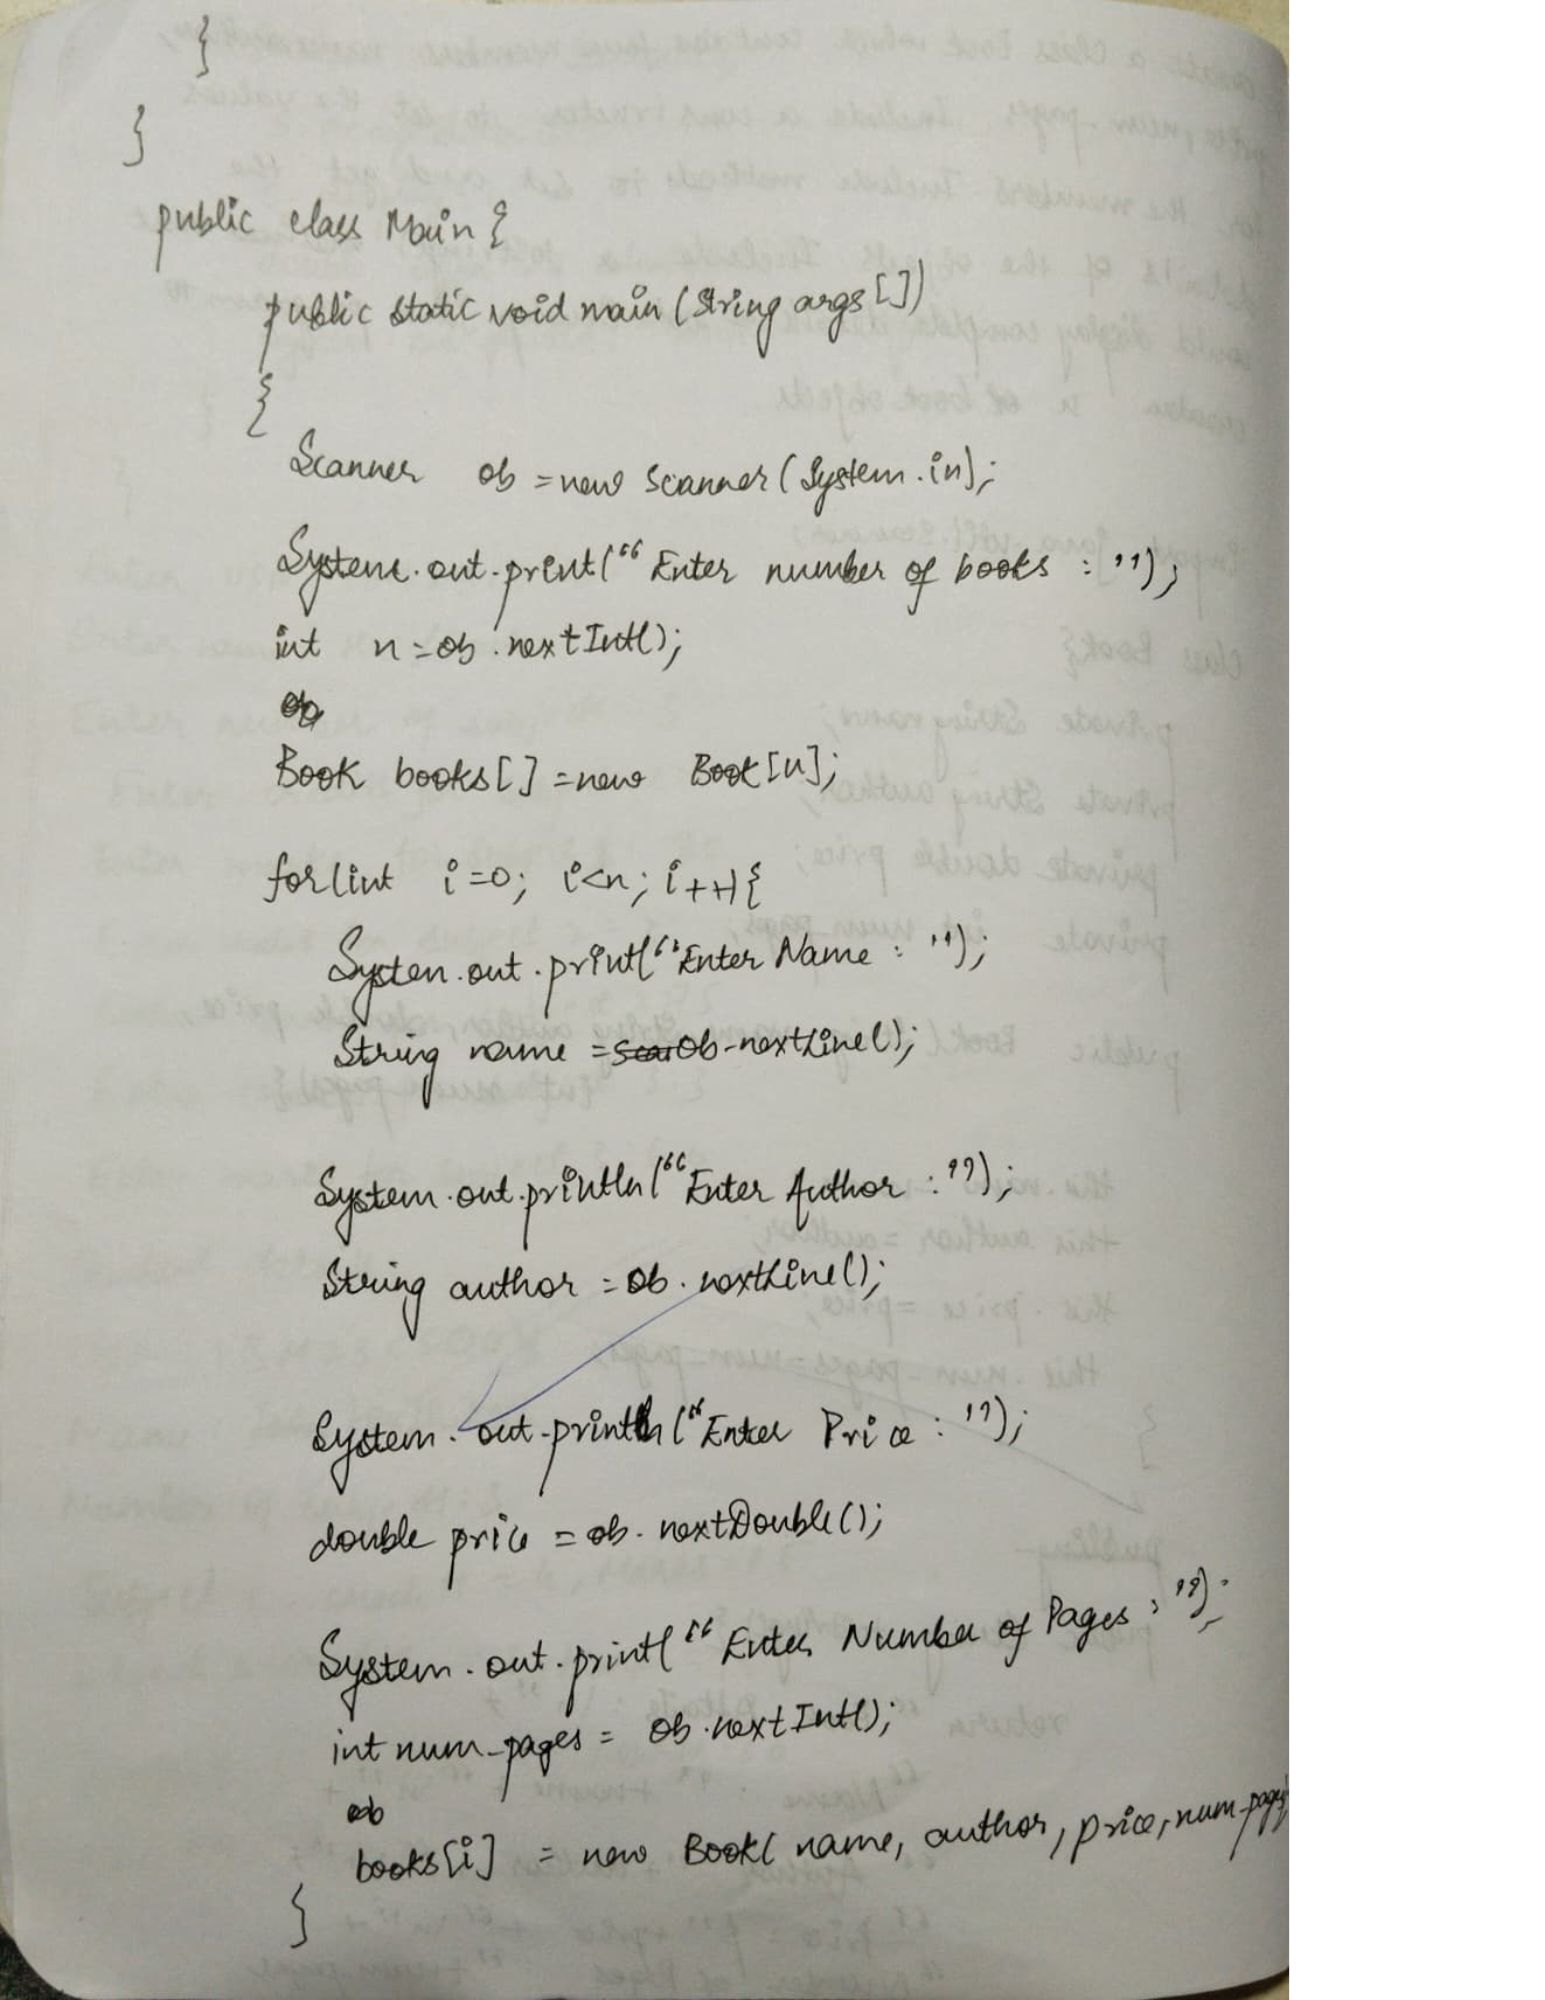 }
}
public class Main {
public static void main (String args [])
{
Scanner ob = new Scanner (System.in);
System.out.print("Enter number of books : ");
int n = ob.nextInt();
ob
Book books[] = new Book[n];
for(int i=0; i<n; i++){
System.out.print("Enter Name : ");
String name = ob.nextLine();
System.out.println("Enter Author : ");
String author = ob.nextLine();
System.out.println("Enter Price : ");
double price = ob.nextDouble();
System.out.print("Enter Number of Pages : ");
int num_pages = ob.nextInt();
ob
books[i] = new Book( name, author, price, num_pages)
}